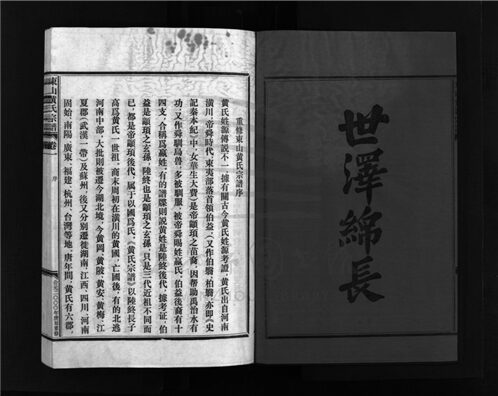 世澤綿長
重修東山黃氏宗譜序
黃氏姓源傳說不一，據有關古今黃氏姓源考證，黃氏出自河南
潢川，帝舜時代，東夷部落首領伯益，（又作伯翳、柏翳，亦即《史
記秦本紀》中，女華生大費）是帝顓頊之苗裔，因幫助禹治水有
功，又作舜馴鳥獸，多被馴服，被帝舜賜姓嬴氏，伯益後裔有十
四支，合稱為嬴姓，有的譜牒則說黃姓是陸終後代，據考证，伯
益是顓頊之玄孫，陸終也是顓頊之玄孫，只是三代近祖不同而
已，都是帝顓頊後代，属于以國爲氏，《黃氏宗譜》以陸終長子
高爲黃氏一世祖，商末周初在潢川的黃國，亡國後，有的北逃
河南中部，大批則被遷今湖北境，今黃岡、黃陂、黃安、黃梅、江
夏郡（武漢一帶）及蘇州，後又分別遷徙湖南、江西、四川、河南
固始、南陽、廣東、福建、杭州、台灣等地，唐年間，黃氏有六郡，
東山黃氏宗譜
卷一
序